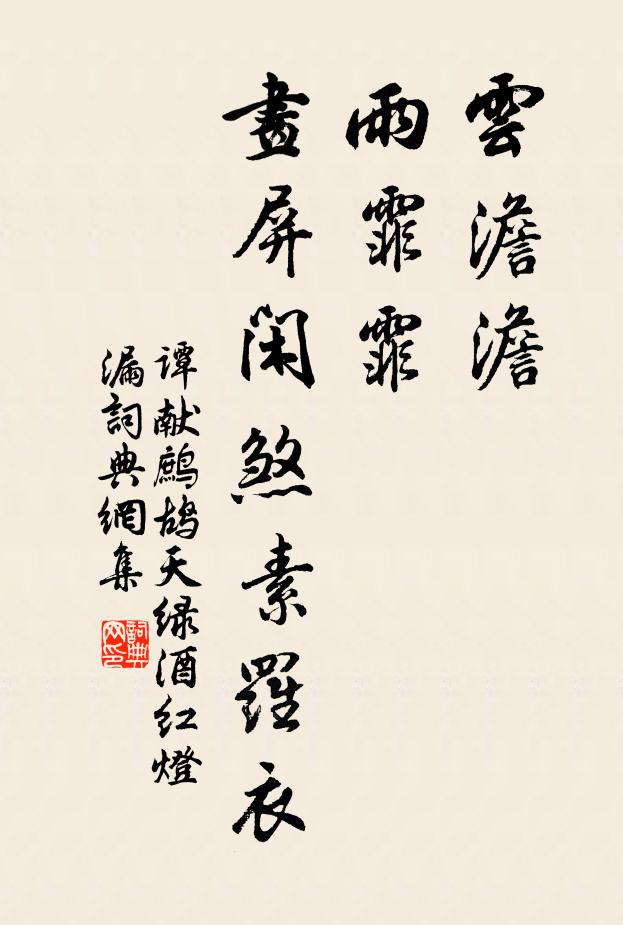 雲澹澹
雨霏霏
畫屏閑煞素羅衣
谭献鷓鴣天緑酒红燈
漏詞典網集
詞典网印